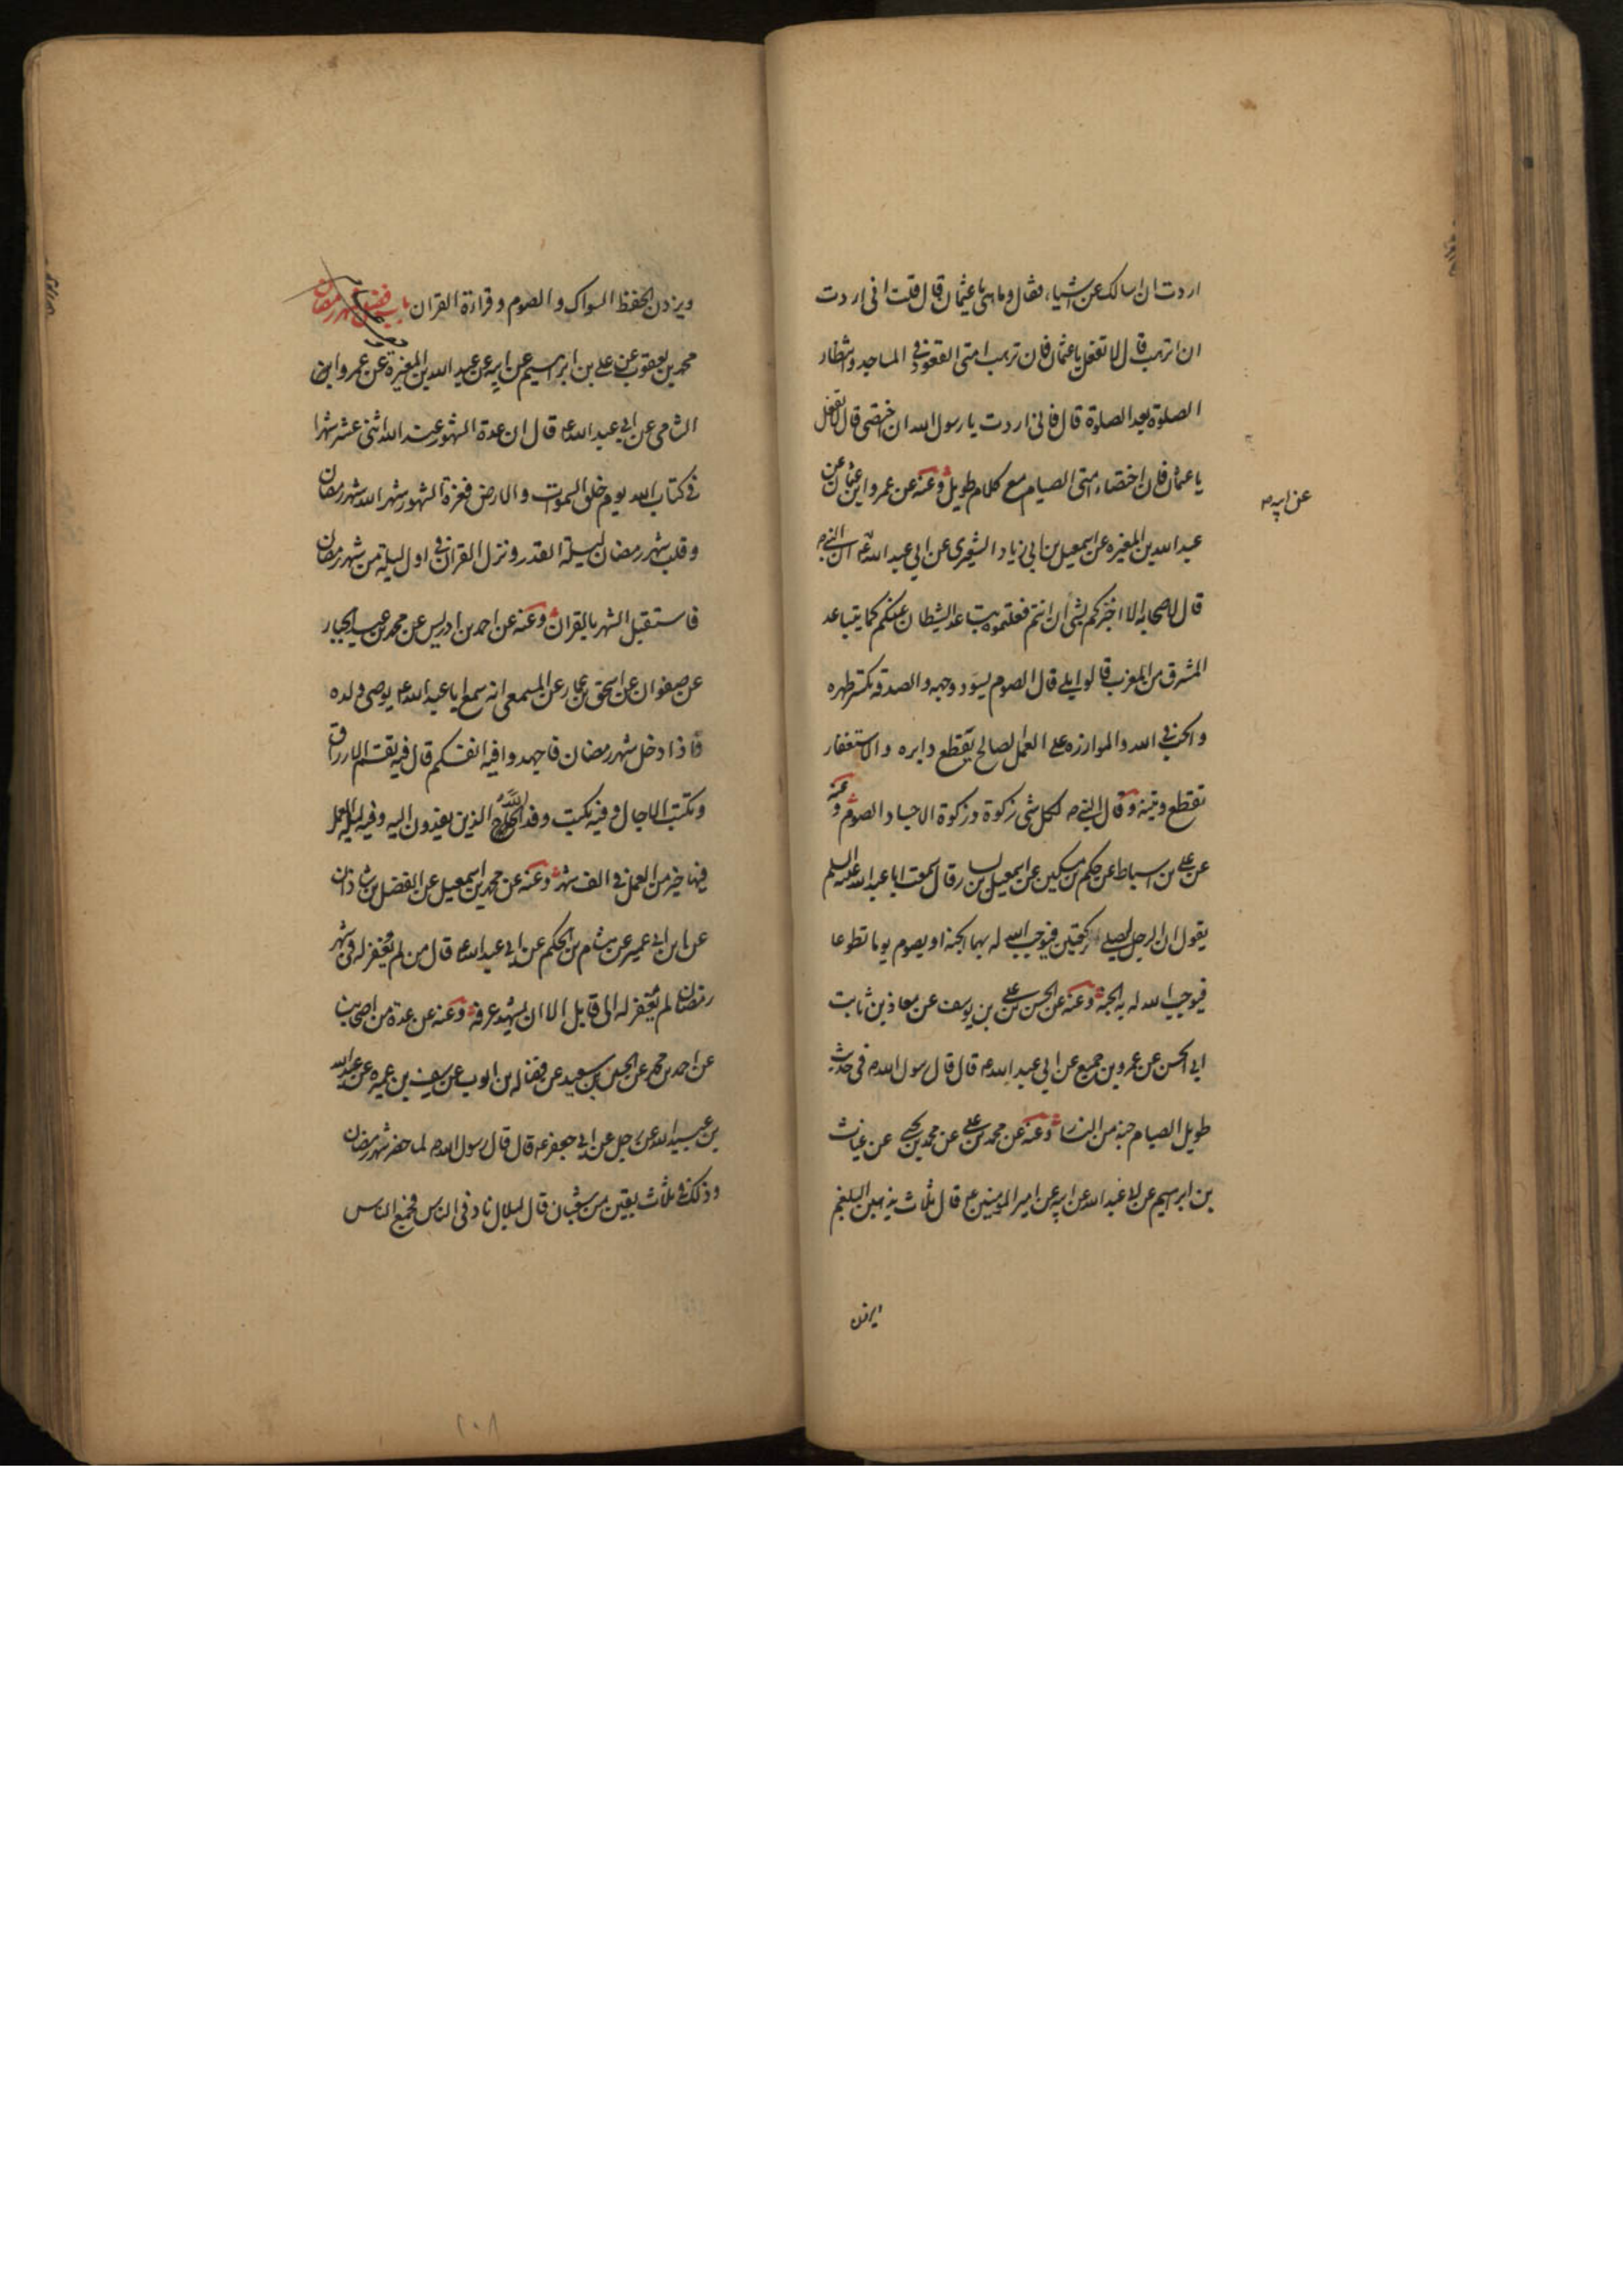 اردت ان اسالك عن اشياء فقال وما هى يا عثمان قال قلت انى اردت
ان اترهب قال لا تفعل يا عثمان فان ترهب امتى القعود فى المساجد وانتظار
الصلوة بعد الصلوة قال فانى اردت يا رسول الله ان اختصى قال لا تفعل
يا عثمان فان اختصاء امتى الصيام مع كلام طويل وعنه عن عمرو بن عثمان عن
عبد الله بن المغيره عن اسمعيل بن ابى زياد الشعيرى عن ابى عبد الله ع ان النبى ص
عن ابيه
قال لاصحابه الا اخبركم بشى ان انتم فعلتموه يتباعد الشيطان عنكم كما يتباعد
المشرق من المغرب قالوا بلى قال الصوم يسود وجهه والصدقه تكسر ظهره
والحب فى الله والموازره على العمل الصالح يقطع دابره والاستغفار
يقطع وتينه وقال النبى ص لكل شى زكوة وزكوة الاجساد الصوم وعنه
عن على بن اسباط عن حكم بن مسكين عن اسمعيل بن يسار قال سمعت ابا عبد الله عليه السلم
يقول ان الرجل ليصلى ركعتين فيوجب الله له بهما الجنة او يصوم يوما تطوعا
فيوجب الله له به الجنة وعنه عن الحسن بن على بن يوسف عن معاذ بن ثابت
ابى الحسن عن عمرو بن جميع عن ابى عبد الله ع قال قال رسول الله ص فى حديث
طويل الصيام جنة من النار وعنه عن محمد بن على عن محمد بن يحيى عن غياث
بن ابرهيم عن ابى عبد الله عن ابيه عن امير المومنين ع قال ثلاث يذهبن البلغم
ويزدن الحفظ السواك والصوم وقراءة القران باب فضل شهر رمضان
محمد بن يعقوب عن على بن ابرهيم عن ابيه عن عبد الله بن المغيرة عن عمرو
الشامى عن ابى عبد الله ع قال ان عدة الشهور عند الله اثنى عشر شهرا
فى كتاب الله يوم خلق السموات والارض فغرة الشهور شهر الله شهر رمضان
وقلب شهر رمضان ليلة القدر ونزل القران فى اول ليلة من شهر رمضان
فاستقبل الشهر بالقران وعنه عن احمد بن ادريس عن محمد بن عبد الجبار
عن صفوان عن اسحق بن عمار عن المسمعى انه سمع ابا عبد الله ع يوصى ولده
فاذا دخل شهر رمضان فاجهدوا فيه انفسكم قال فيه تقسم الارزاق
وتكتب الاجال وفيه يكتب وفد الله الذين يفدون اليه وفيه ليلة العمل
فيها خير من العمل فى الف شهر وعنه عن محمد بن اسمعيل عن الفضل بن شاذان
عن ابن ابى عمير عن هشام بن الحكم عن ابى عبد الله ع قال من لم يغفر له فى شهر
رمضان لم يغفر له الى قابل الا ان يشهد عرفة وعنه عن عدة من اصحابنا
عن احمد بن محمد عن الحسين بن سعيد عن فضاله بن ايوب عن سيف بن عميره عن عبد الله
بن عبيد الله عن رجل عن ابى جعفر ع قال قال رسول الله ص لما حضر شهر رمضان
وذلك فى ثلاث بقين من شعبان قال لبلال ناد فى الناس فجمع الناس
٢٠٨